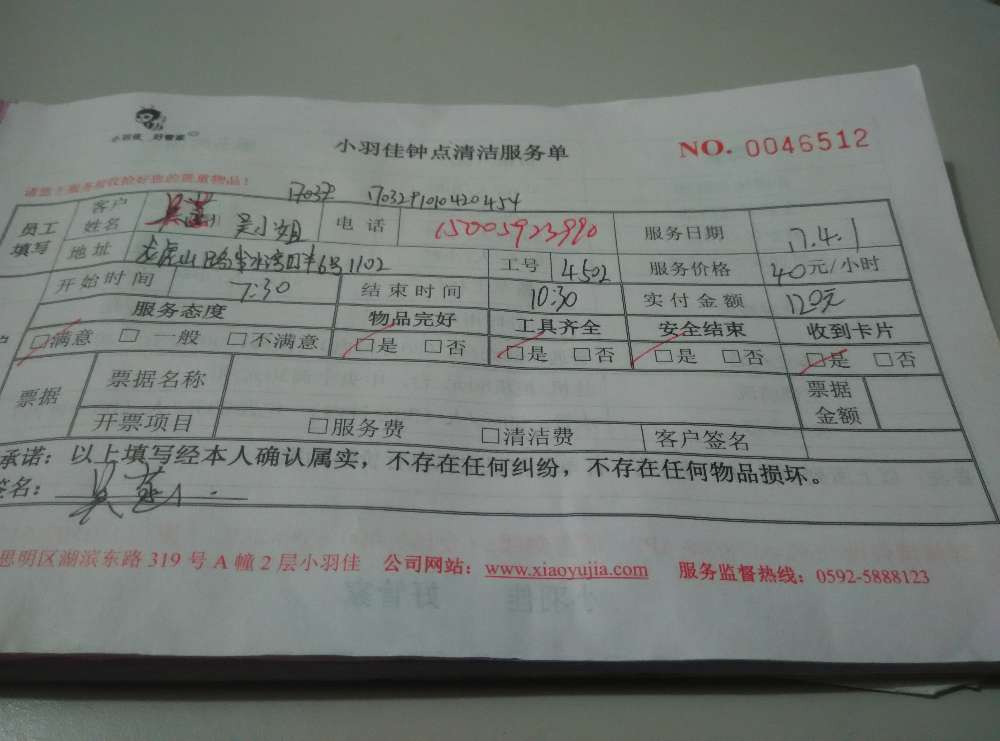 小羽佳 好管家
小羽佳钟点清洁服务单
NO. 0046512
请您于服务前收拾好您的贵重物品!
1703291010420454
员工填写 客户姓名 吴小姐 电话 15005923990 服务日期 17.4.1
地址 6号1102 工号 4502 服务价格 40元/小时
开始时间 7:30 结束时间 10:30 实付金额 120元
服务态度 物品完好 工具齐全 安全结束 收到卡片
□满意 □一般 □不满意 □是 □否 □是 □否 □是 □否 □是 □否
票据 票据名称 票据金额
开票项目 □服务费 □清洁费 客户签名
承诺:以上填写经本人确认属实,不存在任何纠纷,不存在任何物品损坏。
签名:
思明区湖滨东路 319 号 A 幢 2 层小羽佳 公司网站:www.xiaoyujia.com 服务监督热线:0592-5888123